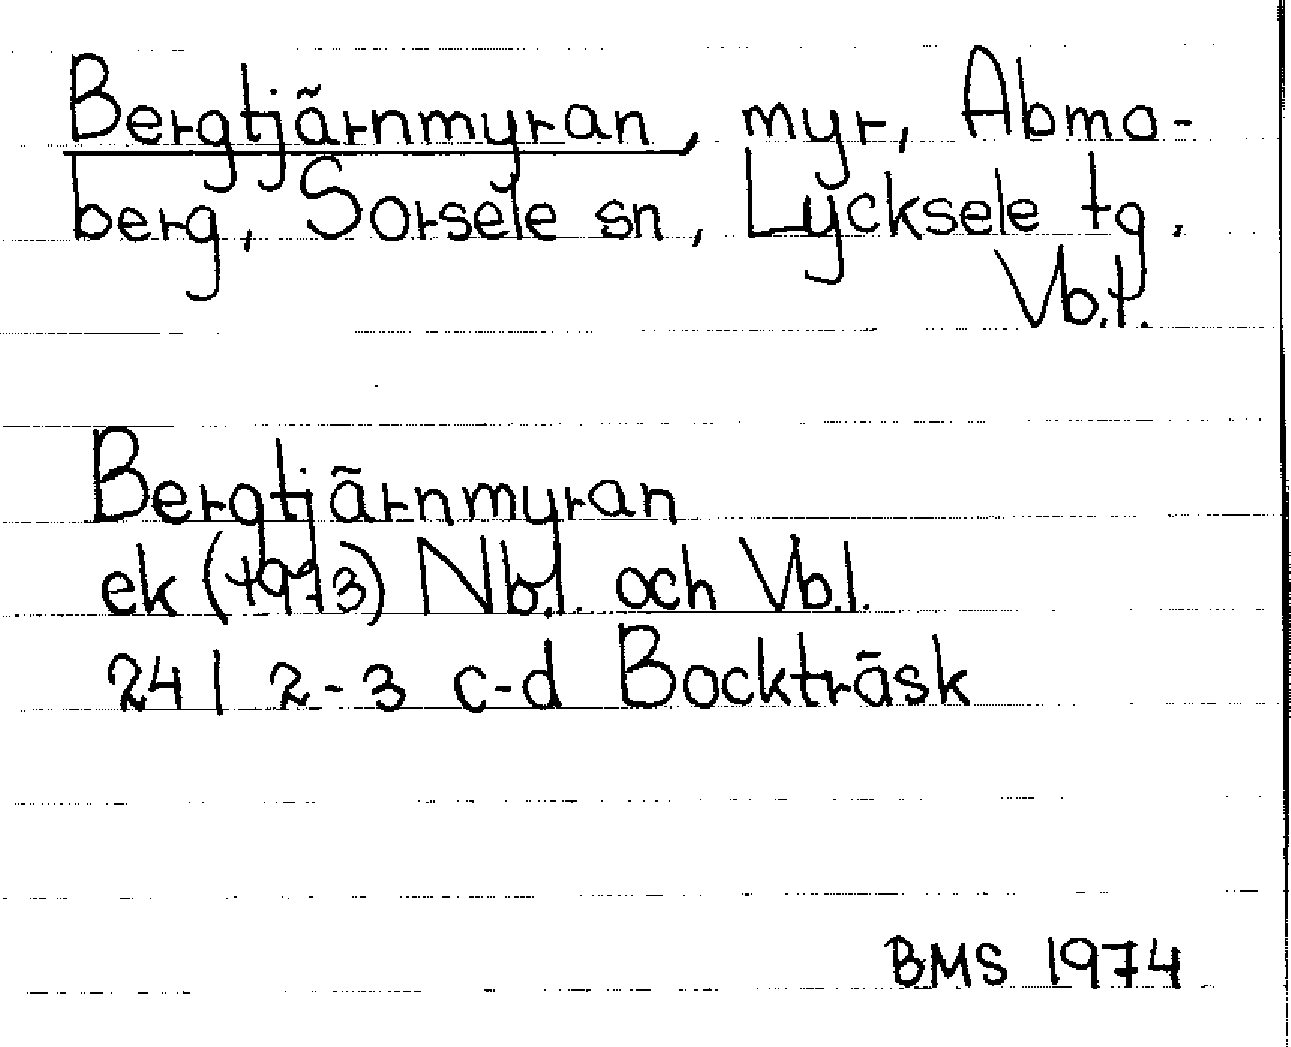 Bergtjärnmyran, myr, Abmo-
berg, Sorsele sn, Lycksele tg.
Vb.l.
Bergtjärnmyran
ek (1973) Nb.l. och Vb.l.
24 I 2-3 c-d Bockträsk
BMS 1974